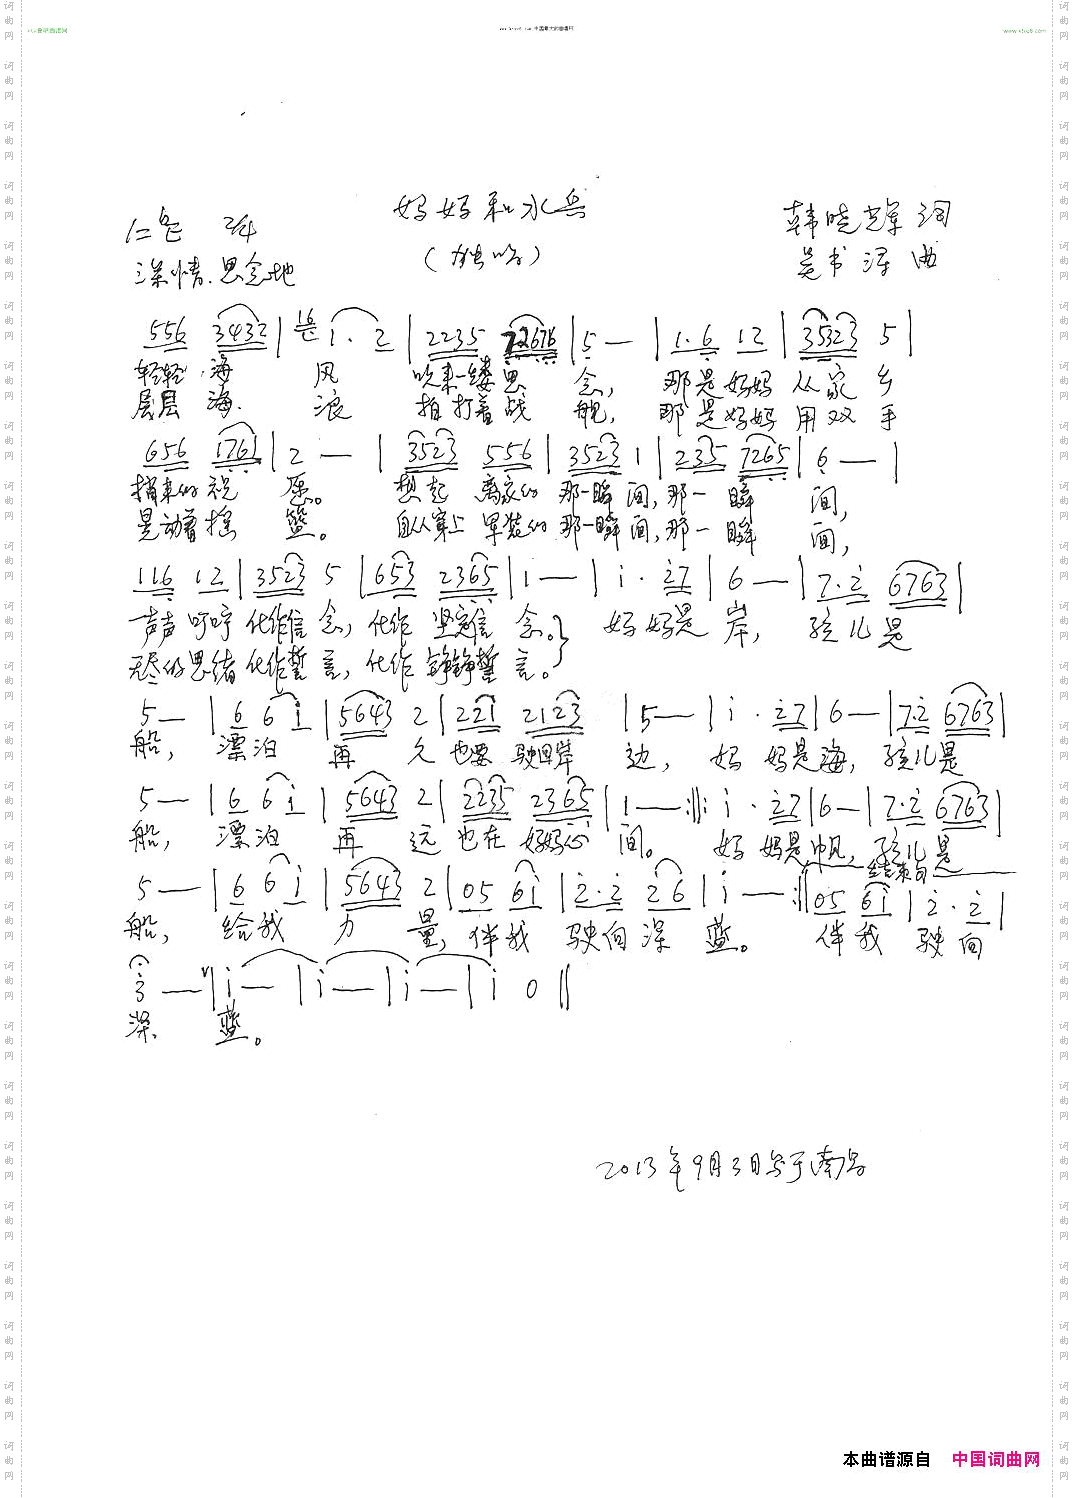 妈妈和水兵
1=E 2/4
(独唱)
韩晓 词
吴书 曲
深情.思念地
556 3432 | 1· 2 | 2235 | 5 — | 1·6 12 | 3523 5 |
轻轻海 风 吹来一缕思 念, 那是妈妈从家乡
层层海 浪 拍打着战 舰, 那是妈妈用双手
656 1761 | 2 — | 3523 556 | 3523 1 | 235 7265 | 6 — |
捎来的祝 愿。 想起 离家的 那一瞬间,那一 瞬 间,
晃动着摇 篮。 自从穿上 军装的 那一瞬间,那一 瞬 间,
116 12 | 3523 5 | 653 2365 | 1 — | i· 27 | 6 — | 7·2 6763 |
一声声叮咛 化作信 念, 化作 坚定信 念。} 妈妈是 岸, 孩儿是
无尽的思绪 化作誓 言, 化作 铮铮誓 言。
5 — | 6 6i | 5643 2 | 221 2123 | 5 — | i· 27 | 6 — | 7·2 6763 |
船, 漂泊 再 久 也要 驶回岸 边, 妈 妈是海, 孩儿是
5 — | 6 6i | 5643 2 | 2235 2365 | 1 — :‖: i· 27 | 6 — | 7·2 6763 |
船, 漂泊 再 远 也在 妈妈心 间。 妈 妈是帆, 孩儿是
结束句
5 — | 6 6i | 5643 2 | 05 6i | 2·2 26 | i — :‖ 05 6i | 2·2 |
船, 给我 力 量, 伴我 驶向深 蓝。 伴我 驶向
3 — | i — | i — | i — | i 0 ‖
深 蓝。
2013年9月3日写于南昌
本曲谱源自 中国词曲网